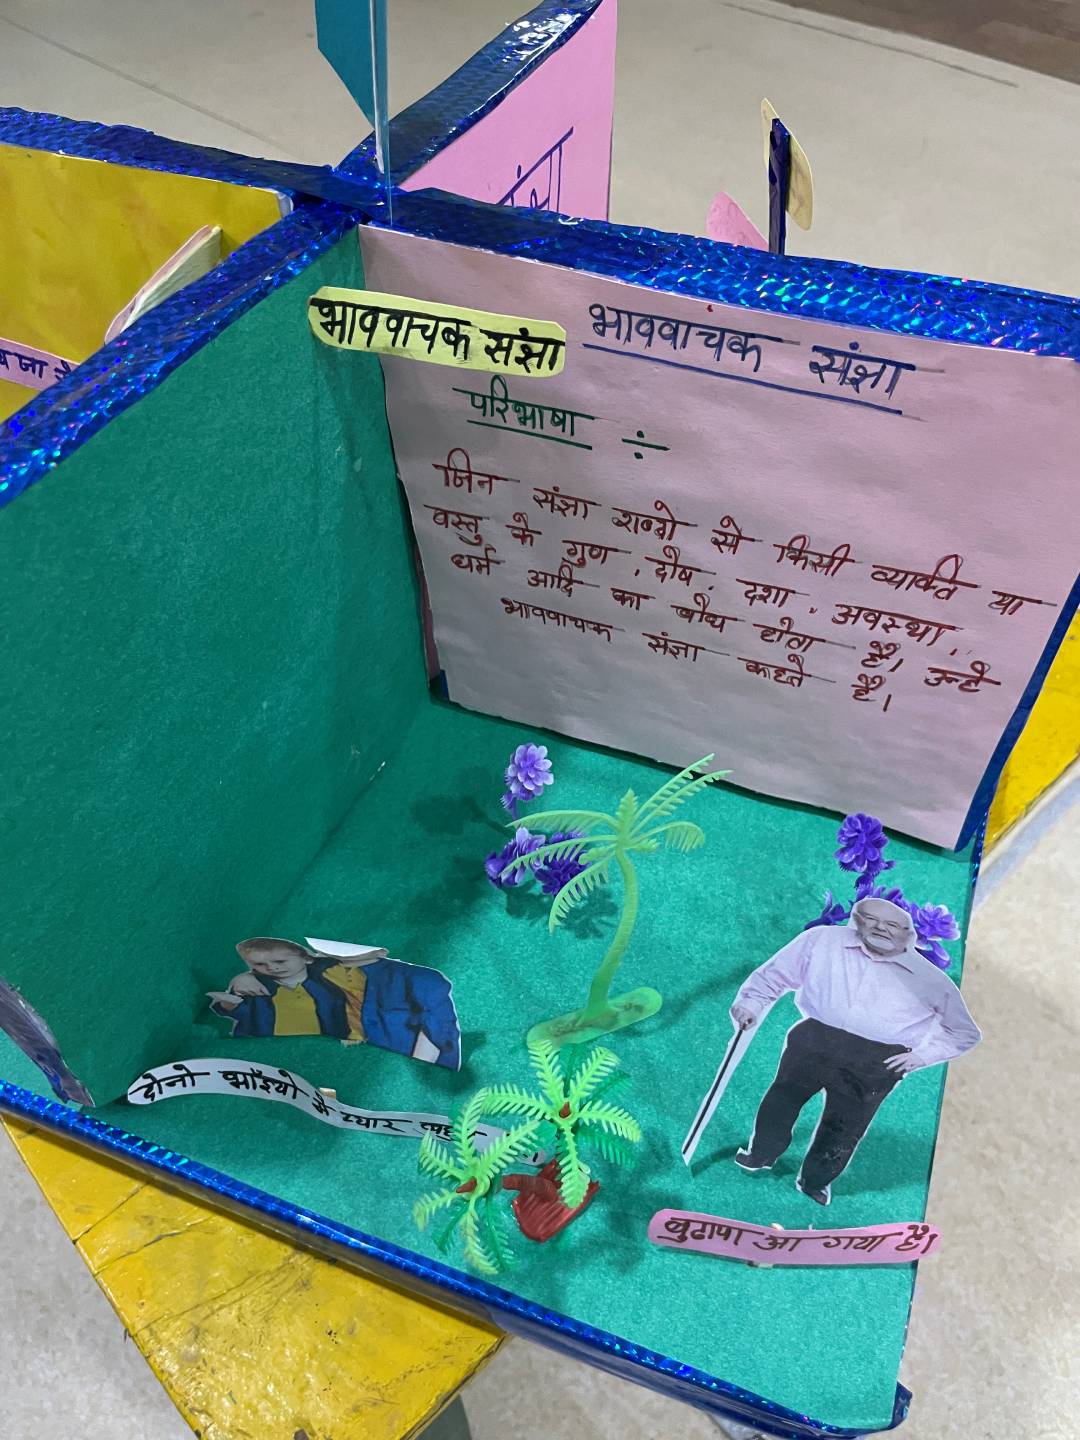 भाववाचक संज्ञा
भाववाचक संज्ञा
परिभाषा ÷
जिन संज्ञा शब्दो से किसी व्यक्ति या
वस्तु के गुण, दोष, दशा, अवस्था,
धर्म आदि का बोध होता है। उन्हे
भाववाचक संज्ञा कहते हैं।
दोनो भाइयो मे प्यार
बुढापा आ गया है।